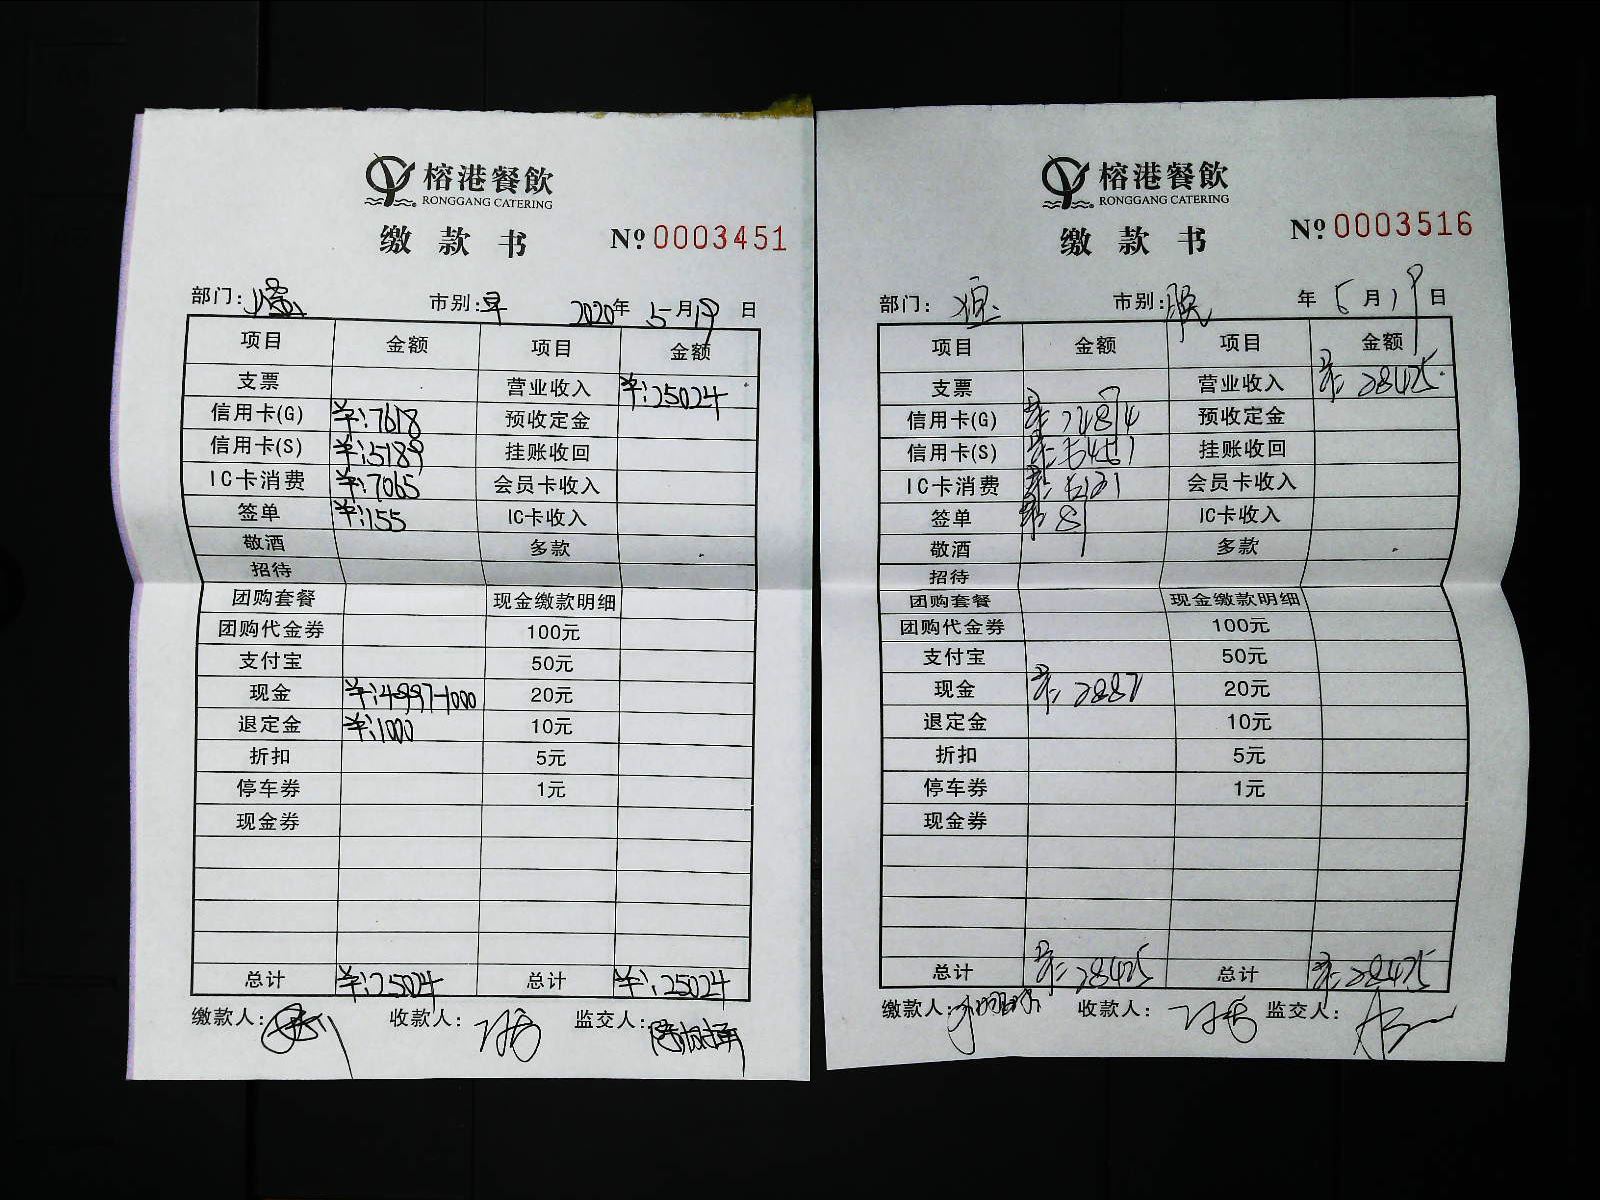 榕港餐飲
RONGGANG CATERING
缴款书 №0003451
部门: 市别:早 2020年5月19日
项目 金额 项目 金额
支票 营业收入 ¥:25024
信用卡(G) ¥:7618 预收定金
信用卡(S) ¥:5189 挂账收回
IC卡消费 ¥:7065 会员卡收入
签单 ¥:155 IC卡收入
敬酒 多款
招待
团购套餐 现金缴款明细
团购代金券 100元
支付宝 50元
现金 ¥:4997-1000 20元
退定金 ¥:1000 10元
折扣 5元
停车券 1元
现金券
总计 ¥:25024 总计 ¥:25024
缴款人: 收款人: 监交人:
榕港餐飲
RONGGANG CATERING
缴款书 №0003516
部门: 市别: 年5月19日
项目 金额 项目 金额
支票 营业收入 ¥:28425
信用卡(G) 预收定金
信用卡(S) 挂账收回
IC卡消费 会员卡收入
签单 IC卡收入
敬酒 多款
招待
团购套餐 现金缴款明细
团购代金券 100元
支付宝 50元
现金 ¥:2887 20元
退定金 10元
折扣 5元
停车券 1元
现金券
总计 ¥:28425 总计 ¥:28425
缴款人: 收款人: 监交人: